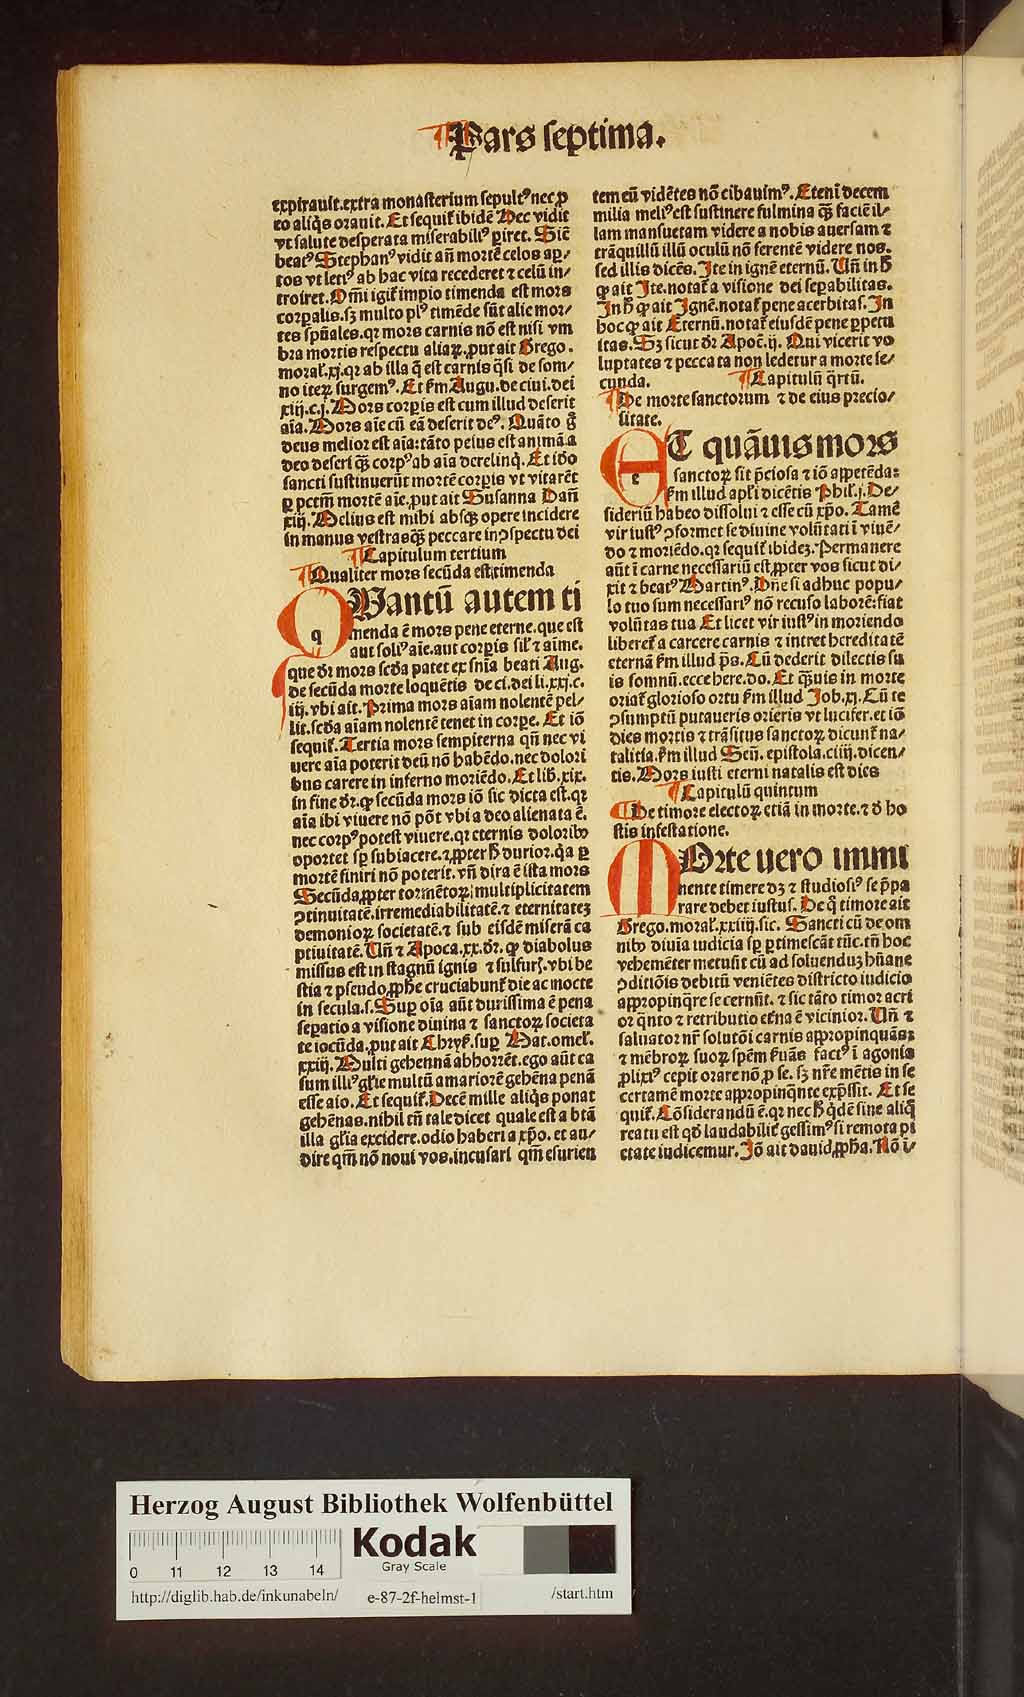 Pars septima.
expirauit.extra monasterium sepultꝰ nec ꝓ
eo aliq̇s orauit. Et sequiť ibidē Hec vidit
vt salute desperata miserabiliꝰ ꝑiret. Siē
beatꝰ Stephanꝰ vidit añ mortē celos ap/
tos vt letiꝰ ab hac vita recederet ⁊ celū in/
troiret. Om̄i igiť impio timenda est mors
corꝑalis.sꝫ multo plꝰ timēde sūt alie mor/
tes spūales.qꝛ mors carnis nō est nisi vm
bra mortis respectu aliaꝝ.put ait Grego.
moral̃.xj.qꝛ ab illa q̄ est carnis q̄si de som/
no iteꝝ surgemꝰ. Et f̄m Augu.de ciui.dei
xiij.c.j. Mors corꝑis est cum illud deserit
aīa. Mors aīe cū eā deserit deꝰ. Quāto g̊
deus melior est aīa:tāto peius est animā a
deo deseri q̄ꝫ corpꝰ ab aīa derelinq̄. Et iđo
sancti sustinuerūt mortē corꝑis vt vitarēt
ꝑ pctm̄ mortē aīe,put ait Susanna Dañ
xiij. Melius est mihi absqꝫ opere incidere
in manus vestrasq̄ꝫ peccare inꝯspectu dei
Capitulum tertium
Qualiter mors secūda est timenda
QUantū autem ti
q
menda ē mors pene eterne.que est
aut soliꝰ aīe.aut corꝑis sil̃ ⁊ aīme.
que dr̄ mors scđa patet ex snīa beati Aug.
de secūda morte loquētis de ci.dei li.xxj.c.
iij.vbi ait. Prima mors aīam nolentē pel/
lit.scđa aīam nolentē tenet in corꝑe. Et iō
sequiť. Tertia mors sempiterna qñ nec vi
uere aīa poterit deū nō habēdo.nec dolori
bus carere in inferno moriēdo. Et lib.xix.
in fine dr̄.ꝙ secūda mors iō sic dicta est.qꝛ
aīa ibi viuere nō pōt vbi a deo alienata ē.
nec corpꝰ potest viuere.qꝛ eternis doloribꝰ
oportet sꝑ subiacere.⁊ ꝓpter ħ durior.q̇a ꝑ
mortē finiri nō poterit.vñ dira ē ista mors
Secūda ꝓpter tormētoꝝ multiplicitatem
ꝯtinuitatē.irremediabilitatē.⁊ eternitateꝫ
demonioꝝ societatē.⁊ sub eisdē miserā ca
ptiuitatē. Uñ ⁊ Apoca.xx.dr̄. ꝙ diabolus
missus est in stagnū ignis ⁊ sulfurꝭ.vbi be
stia ⁊ pseudo ꝓphe cruciabunť die ac nocte
in secula.s. Suꝑ oīa aūt durissima ē pena
seꝑatio a visione diuina ⁊ sanctoꝝ societa
te iocūda.put ait Chryſ.suꝑ Mat.omel̃.
xxiij. Multi gehennā abhorrēt.ego aūt ca
sum illiꝰ gl̃ie multū amariorē gehēna penā
esse aio. Et sequiť. Decē mille aliq̇s ponat
gehēnas.nihil tñ tale dicet quale est a btā
illa gl̃ia excidere.odio haberi a xp̄o. et au/
dire qm̄ nō noui vos.incusari qm̄ esurien
tem eū vidētes nō cibauimꝰ. Etenī decem
milia meliꝰ est sustinere fulmina q̄ꝫ faciē il/
lam mansuetam videre a nobis auersam ⁊
trāquillū illū oculū nō ferentē videre nos.
sed illis dicēs. Ite in ignē eternū. Uñ in ħ
ꝙ ait Ite.notať a visione dei seꝑabilitas.
In ħ ꝙ ait Ignē.notať pene acerbitas. In
hoc ꝙ ait Eternū.notať eiusdē pene ꝑpetu
itas. Sꝫ sicut dr̄ Apoc̄.ij. Qui vicerit vo
luptates ⁊ peccata non ledetur a morte se/
cunda. Capitulū q̄rtū.
De morte sanctorum ⁊ de eius precio/
sitate.
ET quāuis mors
e
sanctoꝝ sit p̄ciosa ⁊ iō appetēda:
f̄m illud apl̃i dicētis Phil̃.j. De/
sideriū habeo dissolui ⁊ esse cū xp̄o. Tamē
vir iustꝰ ꝯformet se diuine volūtati ī viuē/
do ⁊ moriēdo.qꝛ sequiť ibideꝫ. Permanere
aūt ī carne necessariū est ꝓpter vos sicut di/
xit ⁊ beatꝰ Martinꝰ. Dñe si adhuc popu/
lo tuo sum necessariꝰ nō recuso laborē:fiat
volūtas tua Et licet vir iustꝰ in moriendo
libereť a carcere carnis ⁊ intret hereditatē
eternā f̄m illud ps̄. Cū dederit dilectis su
is somnū.ecce here.do. Et q̄ꝫuis in morte
oriať glorioso ortu f̄m illud Job.xj. Cū te
ꝯsumptū putaueris orieris vt lucifer.et iō
dies mortis ⁊ trāsitus sanctoꝝ dicunť na/
talitia.f̄m illud Señ. epistola.ciiij.dicen/
tis. Mors iusti eterni natalis est dies
Capitulū quintum
De timore electoꝝ etiā in morte.⁊ đ ho
stis infestatione.
MOrte uero immi
nente timere dꝫ ⁊ studiosiꝰ se p̄pa
rare debet iustus. De q̄ timore ait
Grego.moral̃.xxiiij.sic. Sancti cū de om
nibꝰ diuīa iudicia sꝑ ꝑtimescāt tūc.tñ hoc
vehemēter metuūt cū ad soluenduꝫ hūane
ꝯditiōis debitū veniētes districto iudicio
appropinq̄re se cernūt. ⁊ sic tāto timor acri
or q̄nto ⁊ retributio etna ē vicinior. Uñ ⁊
saluator nr̄ solutōi carnis appropinquās:
⁊ mēbroꝝ suoꝝ spēm f̄uās factꝰ ī agonia
ꝓlixiꝰ cepit orare nō ꝓ se. sꝫ nr̄e mētis in se
certamē morte appropinq̄nte exp̄ssit. Et se
quiť. Cōsiderandū ē.qꝛ nec ħ q̇dē sine aliq̄
reatu est qđ laudabiliť gessimꝰ si remota pi
etate iudicemur. Iō ait dauid ꝓpha. Nō ī/
Herzog August Bibliothek Wolfenbüttel
Kodak
Gray Scale
0 11 12 13 14
http://diglib.hab.de/inkunabeln/ e-87-2f-helmst-1 /start.htm